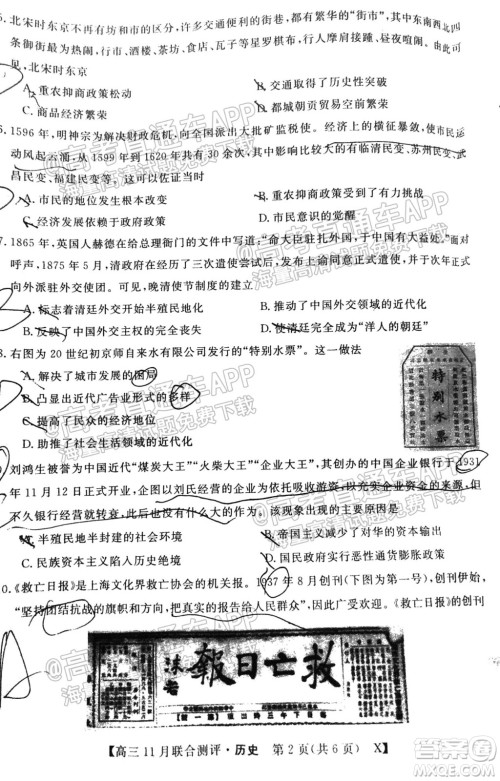 5. 北宋时东京不再有坊和市的区分，许多交通便利的街巷，都有繁华的“街市”，其中东南西北四
条御街最为热闹，行市、酒楼、茶坊、食店等星罗棋布，行人摩肩接踵，昼夜喧闹。由此可
见，北宋时东京
A. 重农抑商政策松动
B. 交通取得了历史性突破
C. 商品经济繁荣
D. 都城商业贸易
6. 1596年，明神宗为解决财政危机，向全国派出大批矿监税使。经济上的横征暴敛，使市民
动风起云涌，从1599年到1620年共有30余次，其中影响较大的有临清民变、苏州民变、武
昌民变、福建民变等。这
A. 市民的地位发生根本改变
B. 重农抑商政策受到了有力挑战
C. 经济发展依赖于政府政策
D. 市民意识的觉醒
7. 1865年，英国人赫德在给总理衙门的文件中写道，“命大臣驻扎外国，于中国有大益处。”面对
呼声，1875年5月，清政府在经历了三次遣使尝试后，发布上谕同意正式遣使，并于次年正式
向外派驻外使臣。晚清使节制度的建立
A. 标志着清廷外交半殖民地化
B. 推动了中国外交领域的近代化
B. 反映了中国外交主权的完整
D. 表明清政府完全成为“洋人的朝廷”
8. 右图为20世纪初京师自来水有限公司发行的“特别水票”。这一做法
A. 解决了城市发展的困局
B. 体现出近代广告业形式的多样
C. 提高了民众的经济地位
D. 有助于城市生活的近代化
特别水票
刘鸿生被誉为中国近代“煤炭大王”“火柴大王”“企业大王”，其创办的中国企业银行于1931
年11月12日正式开业，企图以刘氏经营的企业为依托吸收游资，以充实企业资金的来源，但
不久银行经营就转衰，此后也没有什么大的作为。该现象出现的主要原因是
A. 半殖民地半封建的社会环境
B. 帝国主义减少了对华的资本输出
C. 民族资本主义陷入历史困境
D. 国民政府实行恶性通货膨胀政策
10. 《救亡日报》是上海文化界救亡协会的机关报。1937年8月创刊（下图为第一号），创刊伊始，
“坚持团结抗战的旗帜和方向，把真实的报告给人民群众”，因此广受欢迎。《救亡日报》的创刊
救亡日报
沫若
【高三11月联合测评·历史 第2页（共6页） X】
高考直通车APP
海量高清试题免费下载